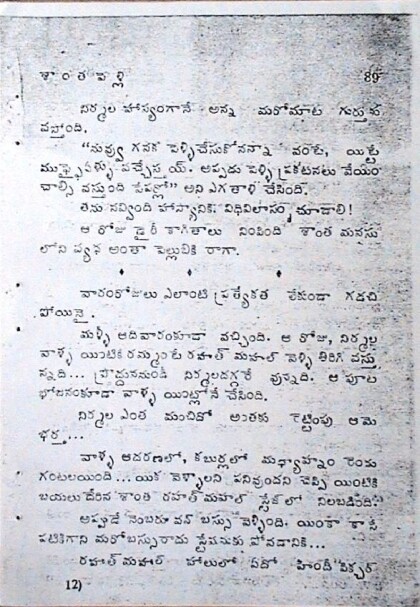 శాంతపెళ్లి 89
నిర్మల హాస్యంగానే అన్న మరోమాట గుర్తుకు
వస్తోంది.
"నువ్వు గనక పెళ్ళిచేసుకోనన్నా వంటే, యిట్టే
ముప్ఫైవళ్ళు వచ్చేస్తయ్. అప్పుడు పెళ్ళి ప్రకటనలు వేయిం
చాల్సి వస్తుంది పేపర్లో" అని ఎగతాళి చేసింది.
తను నవ్వింది హాస్యానికి. విధివిలాసం చూడాలి!
ఆ రోజు డైరీ కాగితాలు నింపింది శాంత మనసు
లోని వ్యధ అంతా పెల్లుబికి రాగా.
వారంరోజులు ఎలాంటి ప్రత్యేకత లేకుండా గడచి
పోయినై.
మళ్ళీ ఆదివారంకూడా వచ్చింది. ఆ రోజు, నిర్మల
వాళ్ళ యింటికి రమ్మంటే రహత్ మహల్ వెళ్ళి తిరిగి వస్తు
న్నది... ప్రొద్దుననుండి నిర్మలదగ్గరే వున్నది. ఆ పూట
భోజనంకూడా వాళ్ళ యింట్లోనే చేసింది.
నిర్మల ఎంత మంచిదో అంతకు రెట్టింపు ఆమె
భర్త...
వాళ్ళ ఆదరణలో, కబుర్లలో మధ్యాహ్నం రెండు
గంటలయింది... యిక వెళ్ళాలని పనివుందని చెప్పి యింటికి
బయలుదేరిన శాంత రహత్ మహల్ స్టేజ్ లో నిలబడింది.
అప్పుడే నెంబరు వన్ బస్సు వెళ్ళింది. యింకా కాసే
పటికిగాని మరోబస్సురాదు స్టేషనుకు పోవడానికి...
రహత్ మహల్ హాలులో ఏదో హిందీ పిక్చర్
12)